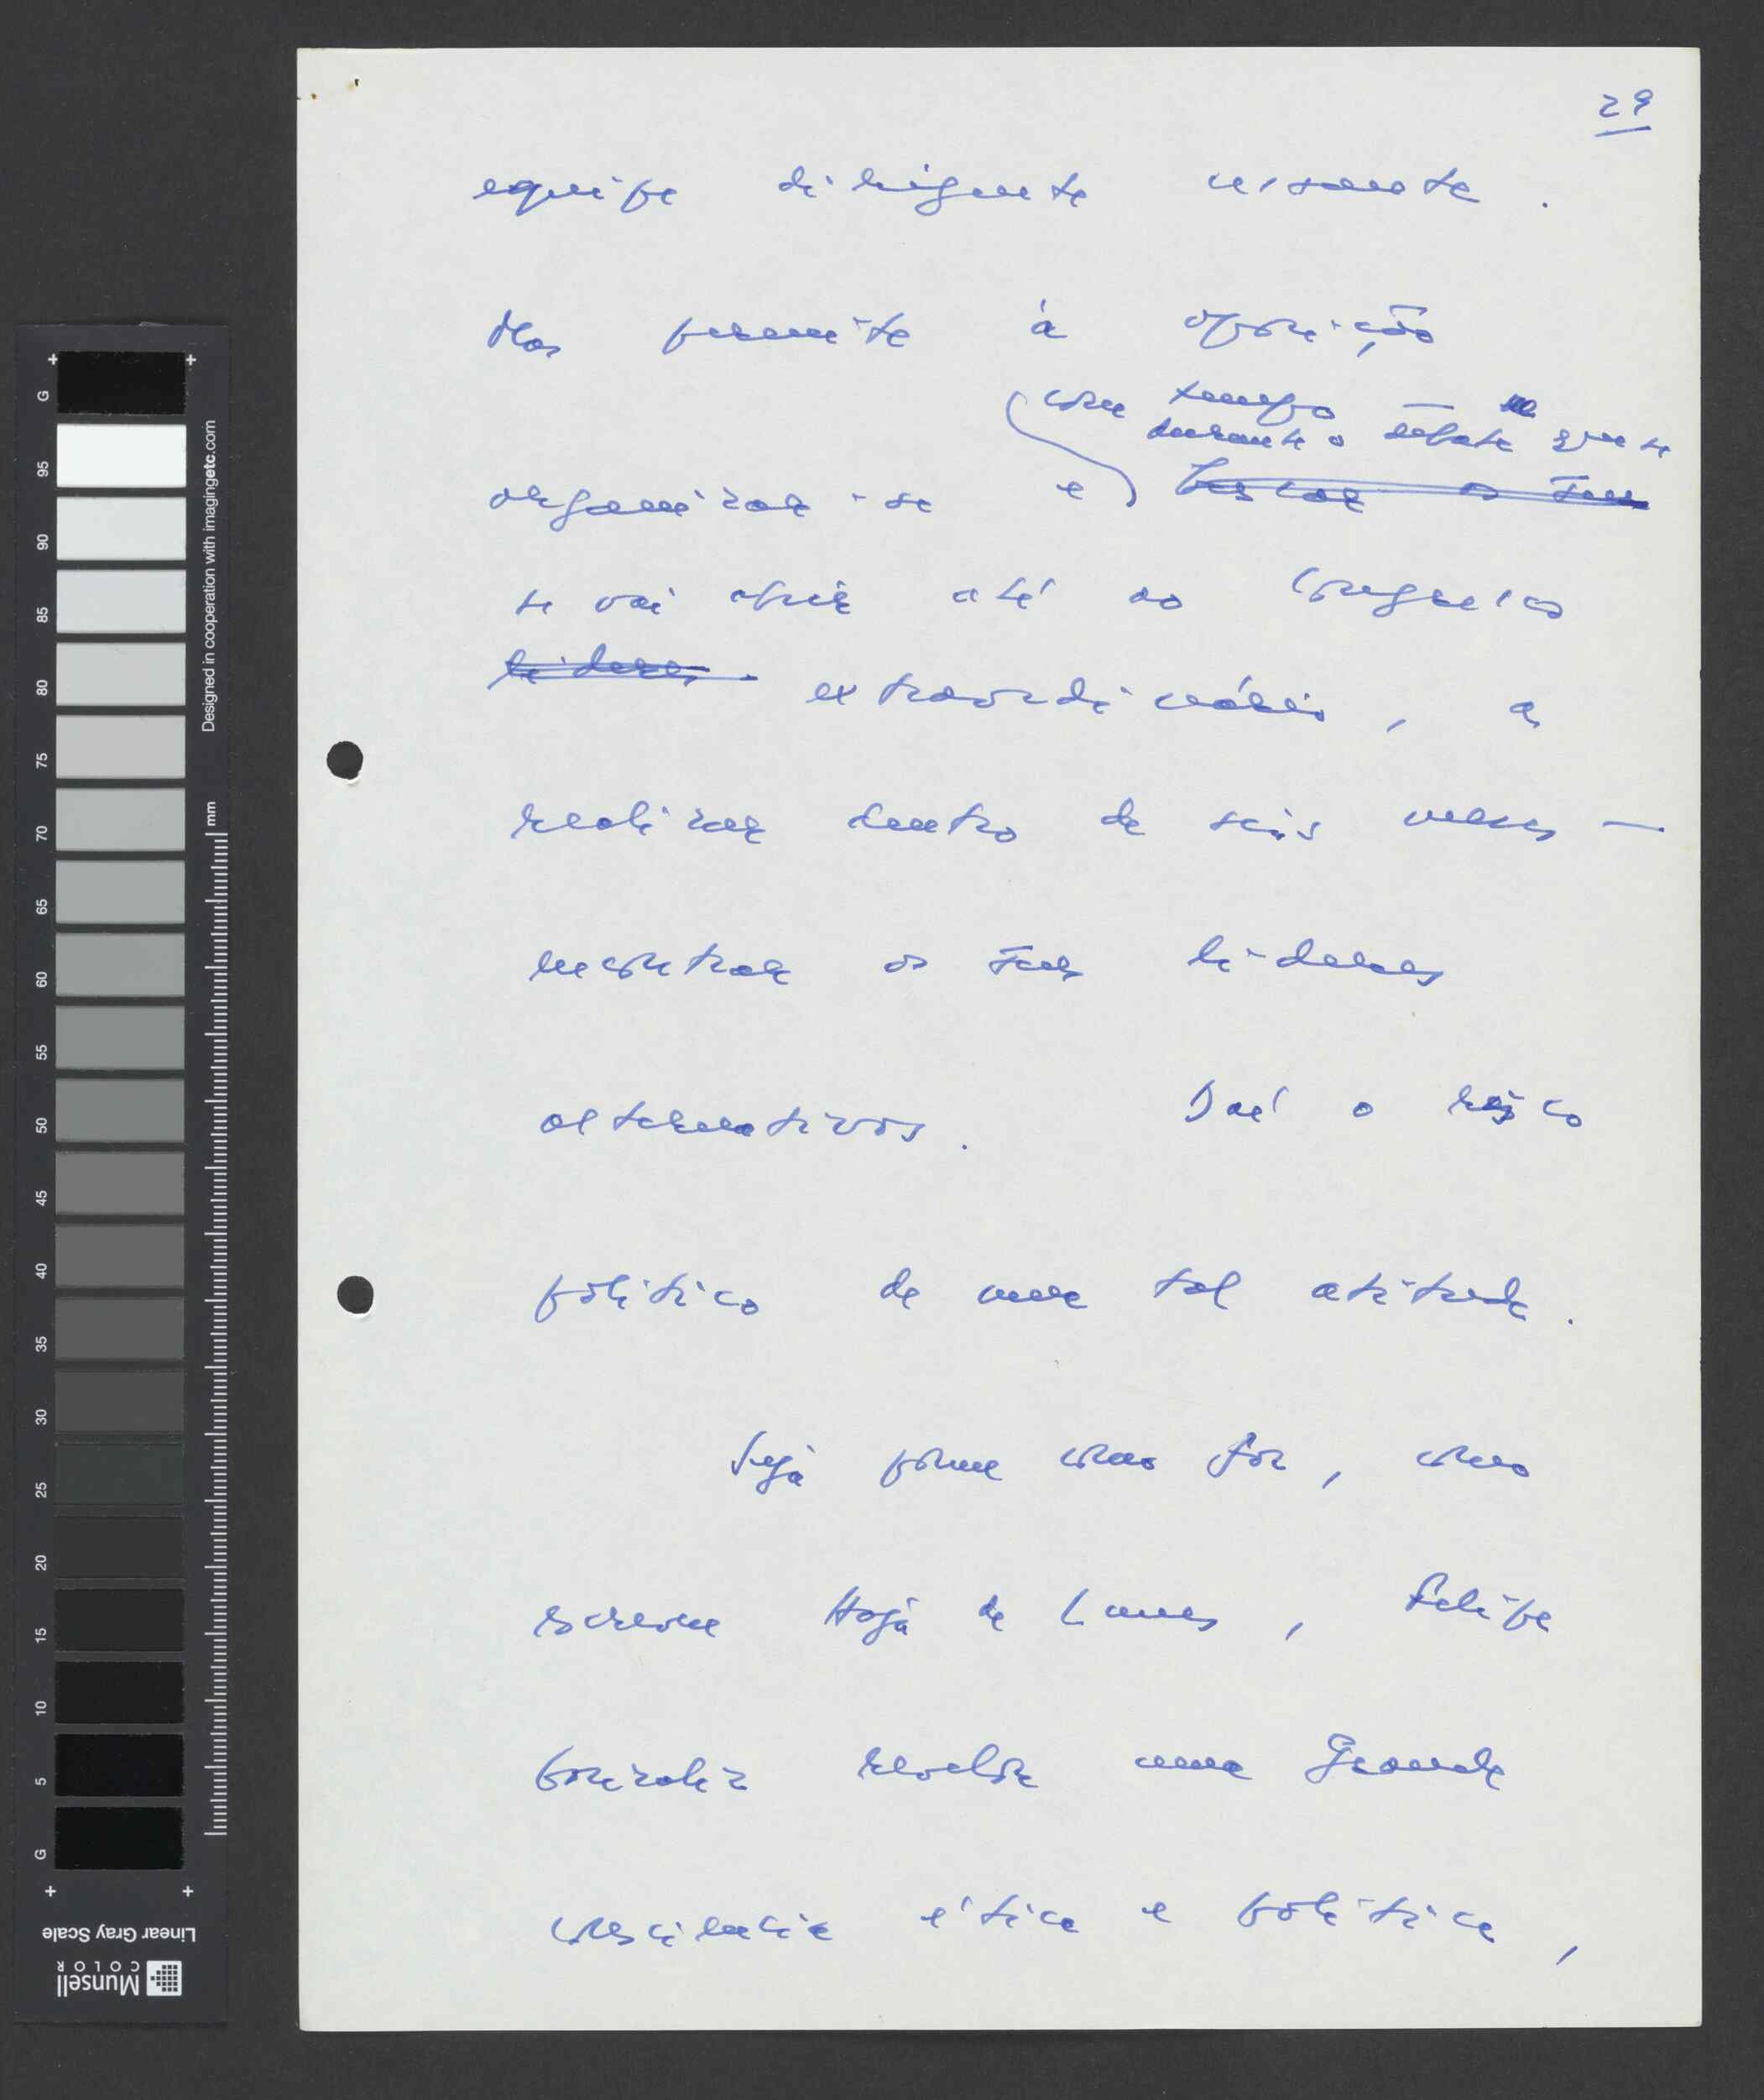 29
equipe dirigente cessante.
Mas permite à oposição
com tempo —
durante o debate que se
organizar-se e buscar os seus
se vai abrir até ao Congresso
líderes. extraordinário, a
realizar dentro de seis meses —
encontrar os seus líderes
alternativos. Daí o risco
político de uma tal atitude.
Seja porém como for, como
escreveu Haja de Lanes, Felipe
González revelou uma grande
consciência ética e política,
G
95
90
85
80
75
70
65
60
55
50
45
40
35
30
25
20
15
10
5
G
mm
Designed in cooperation with imagingetc.com
Linear Gray Scale
Munsell
COLOR